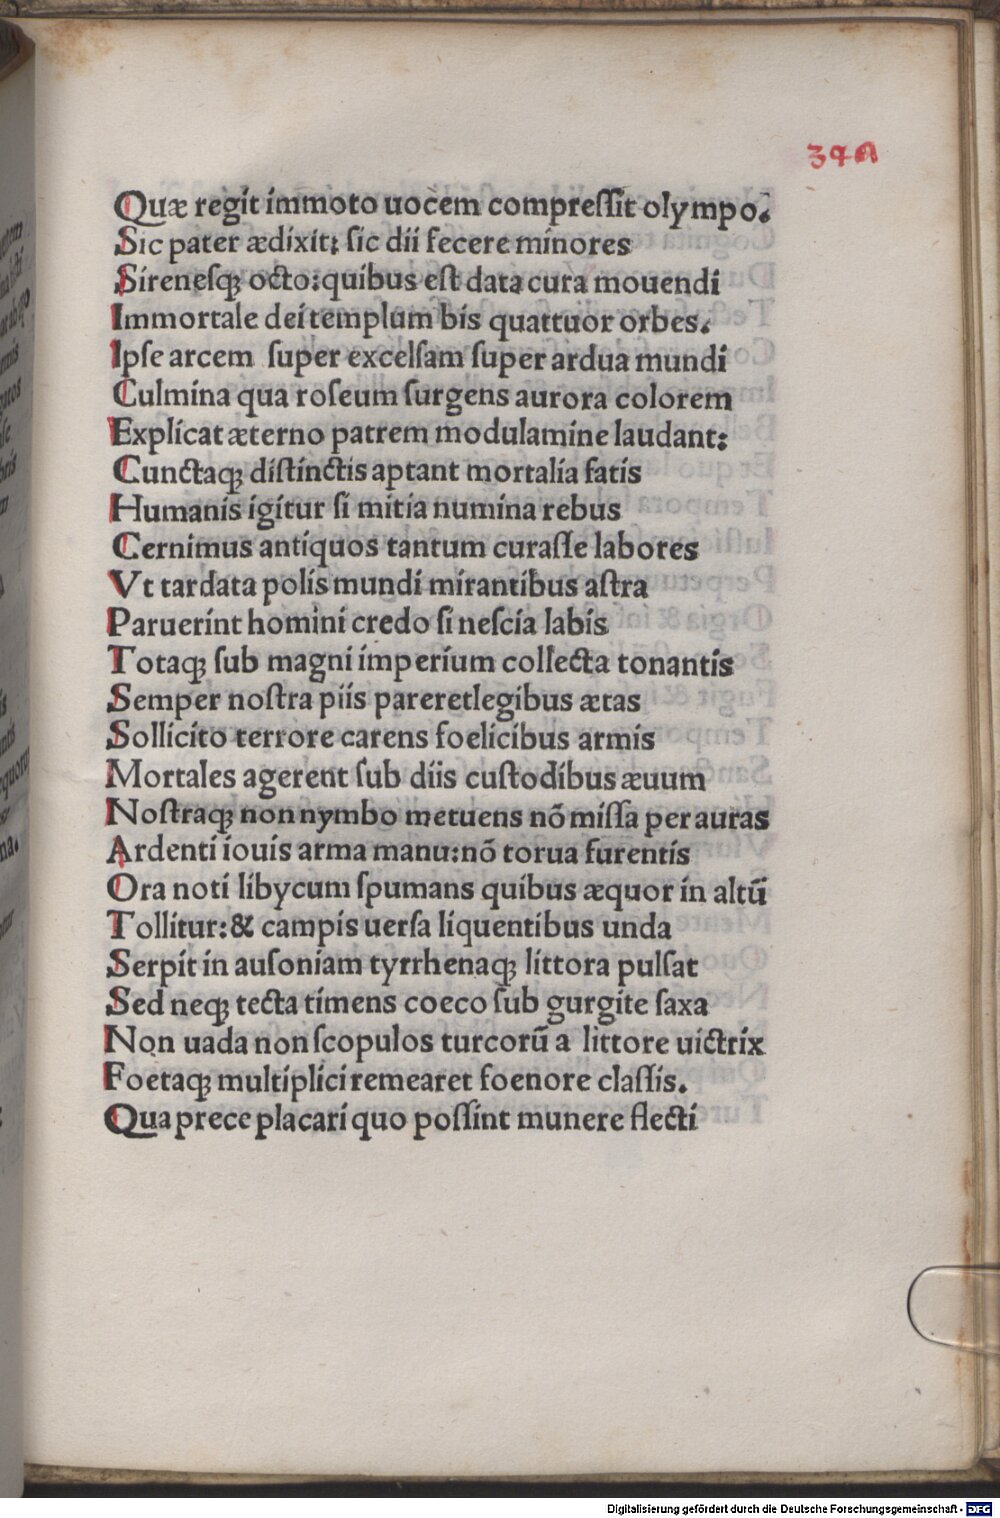 Quæ regit immoto uocem compreſſit olympo.
Sic pater ædixit: ſic dii fecere minores
Sirenesq; octo: quibus eſt data cura mouendi
Immortale dei templum bis quattuor orbes.
Ipſe arcem ſuper excelſam ſuper ardua mundi
Culmina qua roſeum ſurgens aurora colorem
Explicat æterno patrem modulamine laudant:
Cunctaq; diſtinctis aptant mortalia fatis
Humanis igitur ſi mitia numina rebus
Cernimus antiquos tantum curaſſe labores
Vt tardata polis mundi mirantibus aſtra
Paruerint homini credo ſi neſcia labis
Totaq; ſub magni imperium collecta tonantis
Semper noſtra piis pareretlegibus ætas
Sollicito terrore carens foelicibus armis
Mortales agerent ſub diis cuſtodibus æuum
Noſtraq; non nymbo metuens nõ miſſa per auras
Ardenti iouis arma manu: nõ torua furentis
Ora noti libycum ſpumans quibus æquor in altũ
Tollitur: & campis uerſa liquentibus unda
Serpit in auſoniam tyrrhenaq; littora pulſat
Sed neq; tecta timens coeco ſub gurgite ſaxa
Non uada non ſcopulos turcorũ a littore uictrix
Foetaq; multiplici remearet foenore claſſis.
Qua prece placari quo poſſint munere flecti
Digitalisierung gefördert durch die Deutsche Forschungsgemeinschaft - DFG